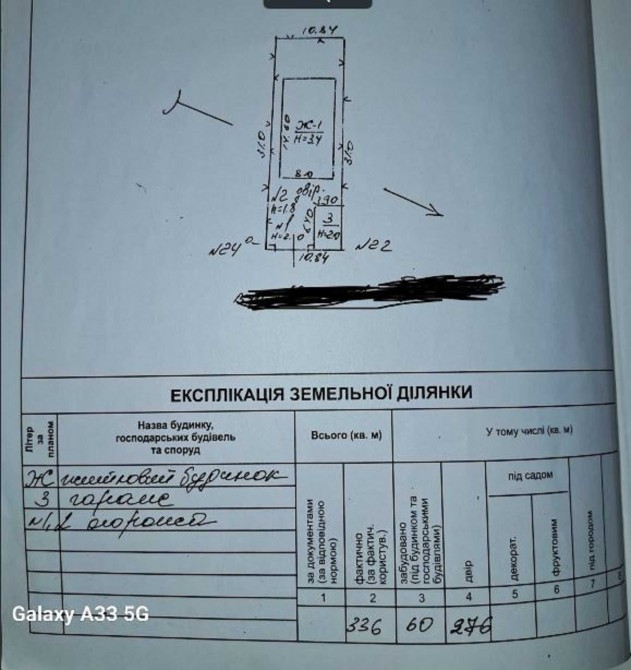 10.84
31.0
14.60
Ж-1
H=3.4
31.0
8.0
№2 двір.
H=1.8
1.90
№1
6.40
З
H=2.0
H=2.0
№24
10.84
№22
ЕКСПЛІКАЦІЯ ЗЕМЕЛЬНОЇ ДІЛЯНКИ
Літер за планом
Назва будинку, господарських будівель та споруд
Всього (кв. м)
У тому числі (кв. м)
за документами (за відповідною нормою)
фактично (за фактич. користув.)
забудовано (під будинком та господарськими будівлями)
двір
під садом
декорат.
фруктовим
під городом
Ж житловий будинок
З гараж
№1,2 огорожа
1 2 3 4 5 6 7 8
336 60 276
Galaxy A33 5G